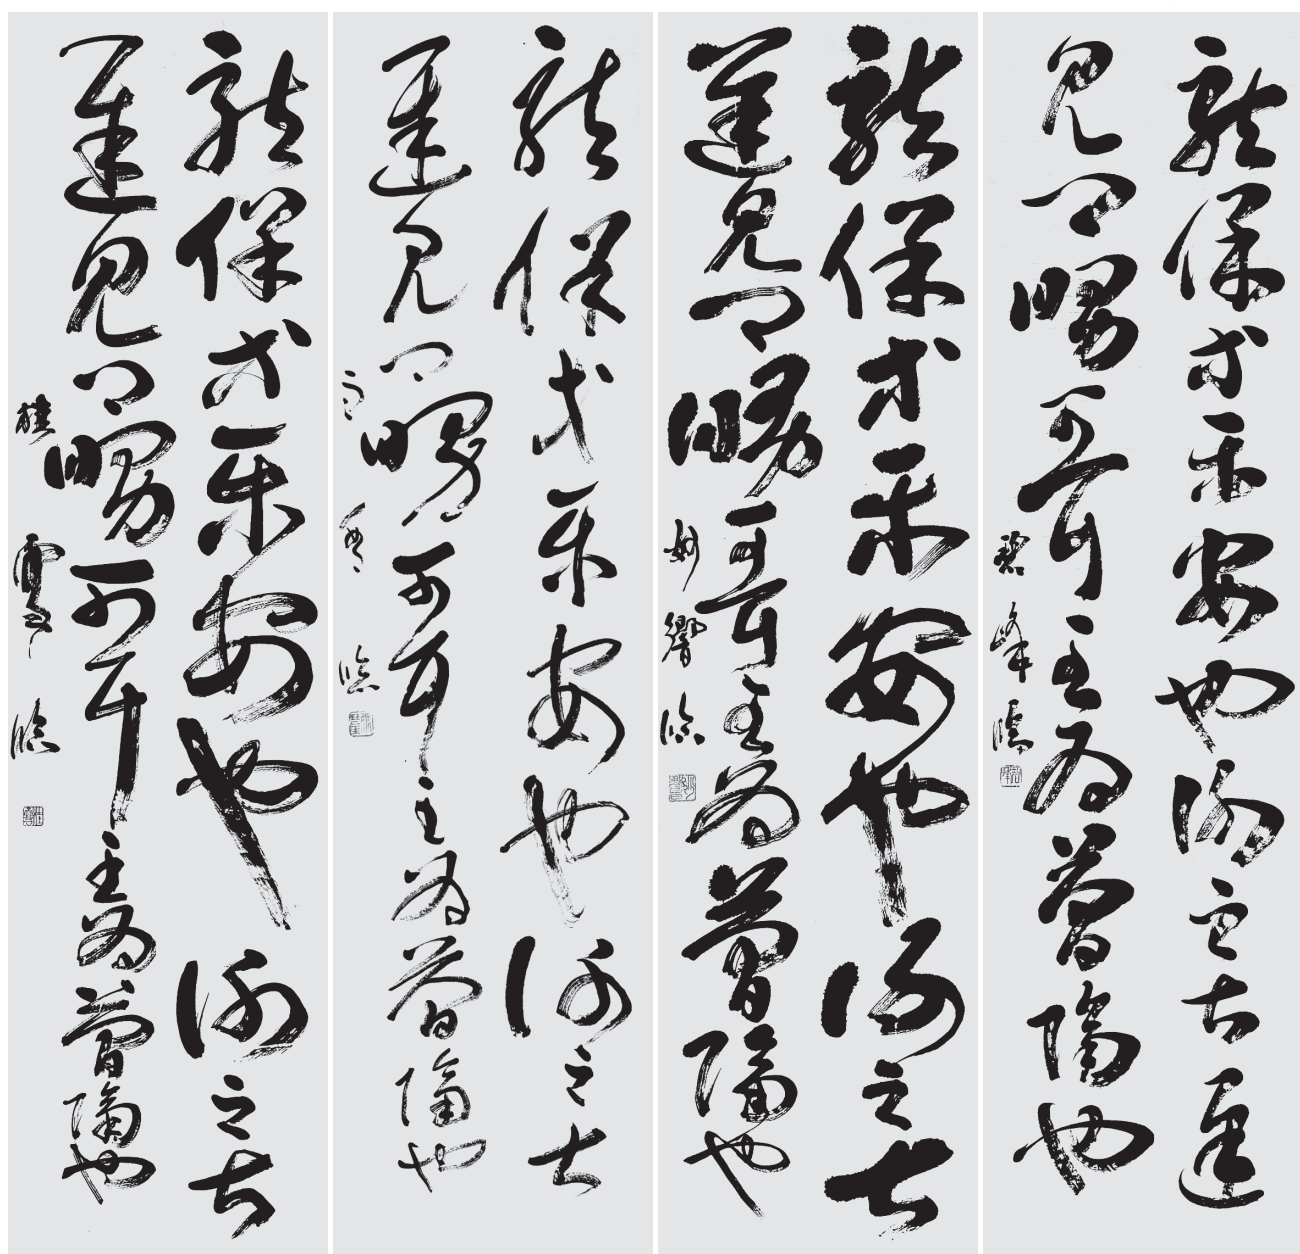 龍保等平安也謝之甚遲
見卿舅可耳至為簡隔也
碧峰臨
龍保等平安也謝之甚
遲見卿舅可耳至為簡隔也
妙響臨
龍保等平安也謝之甚
遲見卿舅可耳至為簡隔也
臨
龍保等平安也謝之甚
遲見卿舅可耳至為簡隔也
桂 臨